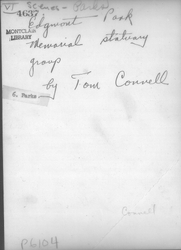 VF Scenes - Parks
4637
MONTCLAIR
LIBRARY
Edgmont Park
Memorial statuary
group
by Tom Connell
G. Parks
Connell
P6104